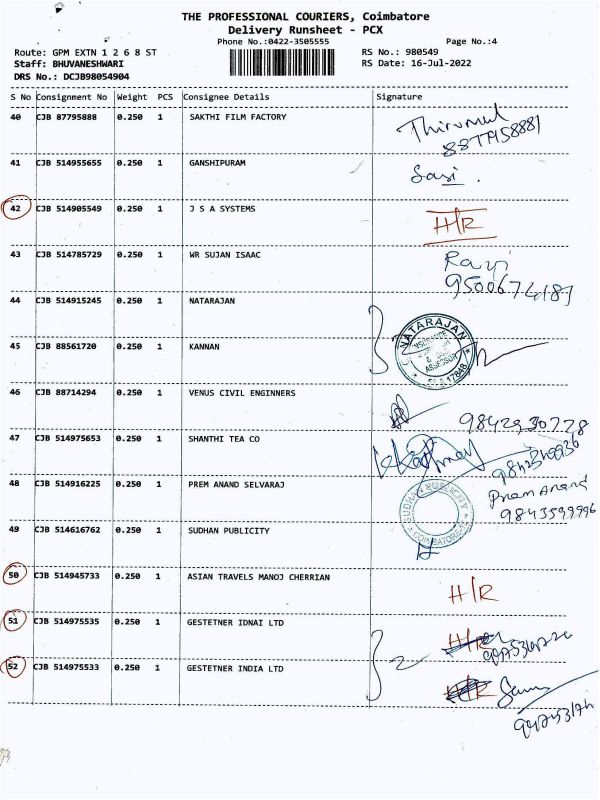 THE PROFESSIONAL COURIERS, Coimbatore
Delivery Runsheet - PCX
Phone No.:0422-3505555
Page No.:4
Route: GPM EXTN 1 2 6 8 ST
RS No.: 980549
Staff: BHUVANESHWARI
RS Date: 16-Jul-2022
DRS No.: DCJB98054904
S No Consignment No Weight PCS Consignee Details Signature
40 CJB 87795888 0.250 1 SAKTHI FILM FACTORY
8877958881
41 CJB 514955655 0.250 1 GANSHIPURAM Sasi.
42 CJB 514905549 0.250 1 J S A SYSTEMS H/R
43 CJB 514785729 0.250 1 WR SUJAN ISAAC Ravi
9500674187
44 CJB 514915245 0.250 1 NATARAJAN
NATARAJAN
45 CJB 88561720 0.250 1 KANNAN
ASSESSOR
46 CJB 88714294 0.250 1 VENUS CIVIL ENGINNERS
9842930778
47 CJB 514975653 0.250 1 SHANTHI TEA CO
48 CJB 514916225 0.250 1 PREM ANAND SELVARAJ Prem Anand
9843599996
SUDHAN PUBLICITY
COIMBATORE
49 CJB 514616762 0.250 1 SUDHAN PUBLICITY
50 CJB 514945733 0.250 1 ASIAN TRAVELS MANOJ CHERRIAN H/R
51 CJB 514975535 0.250 1 GESTETNER IDNAI LTD H/R
52 CJB 514975533 0.250 1 GESTETNER INDIA LTD H/R